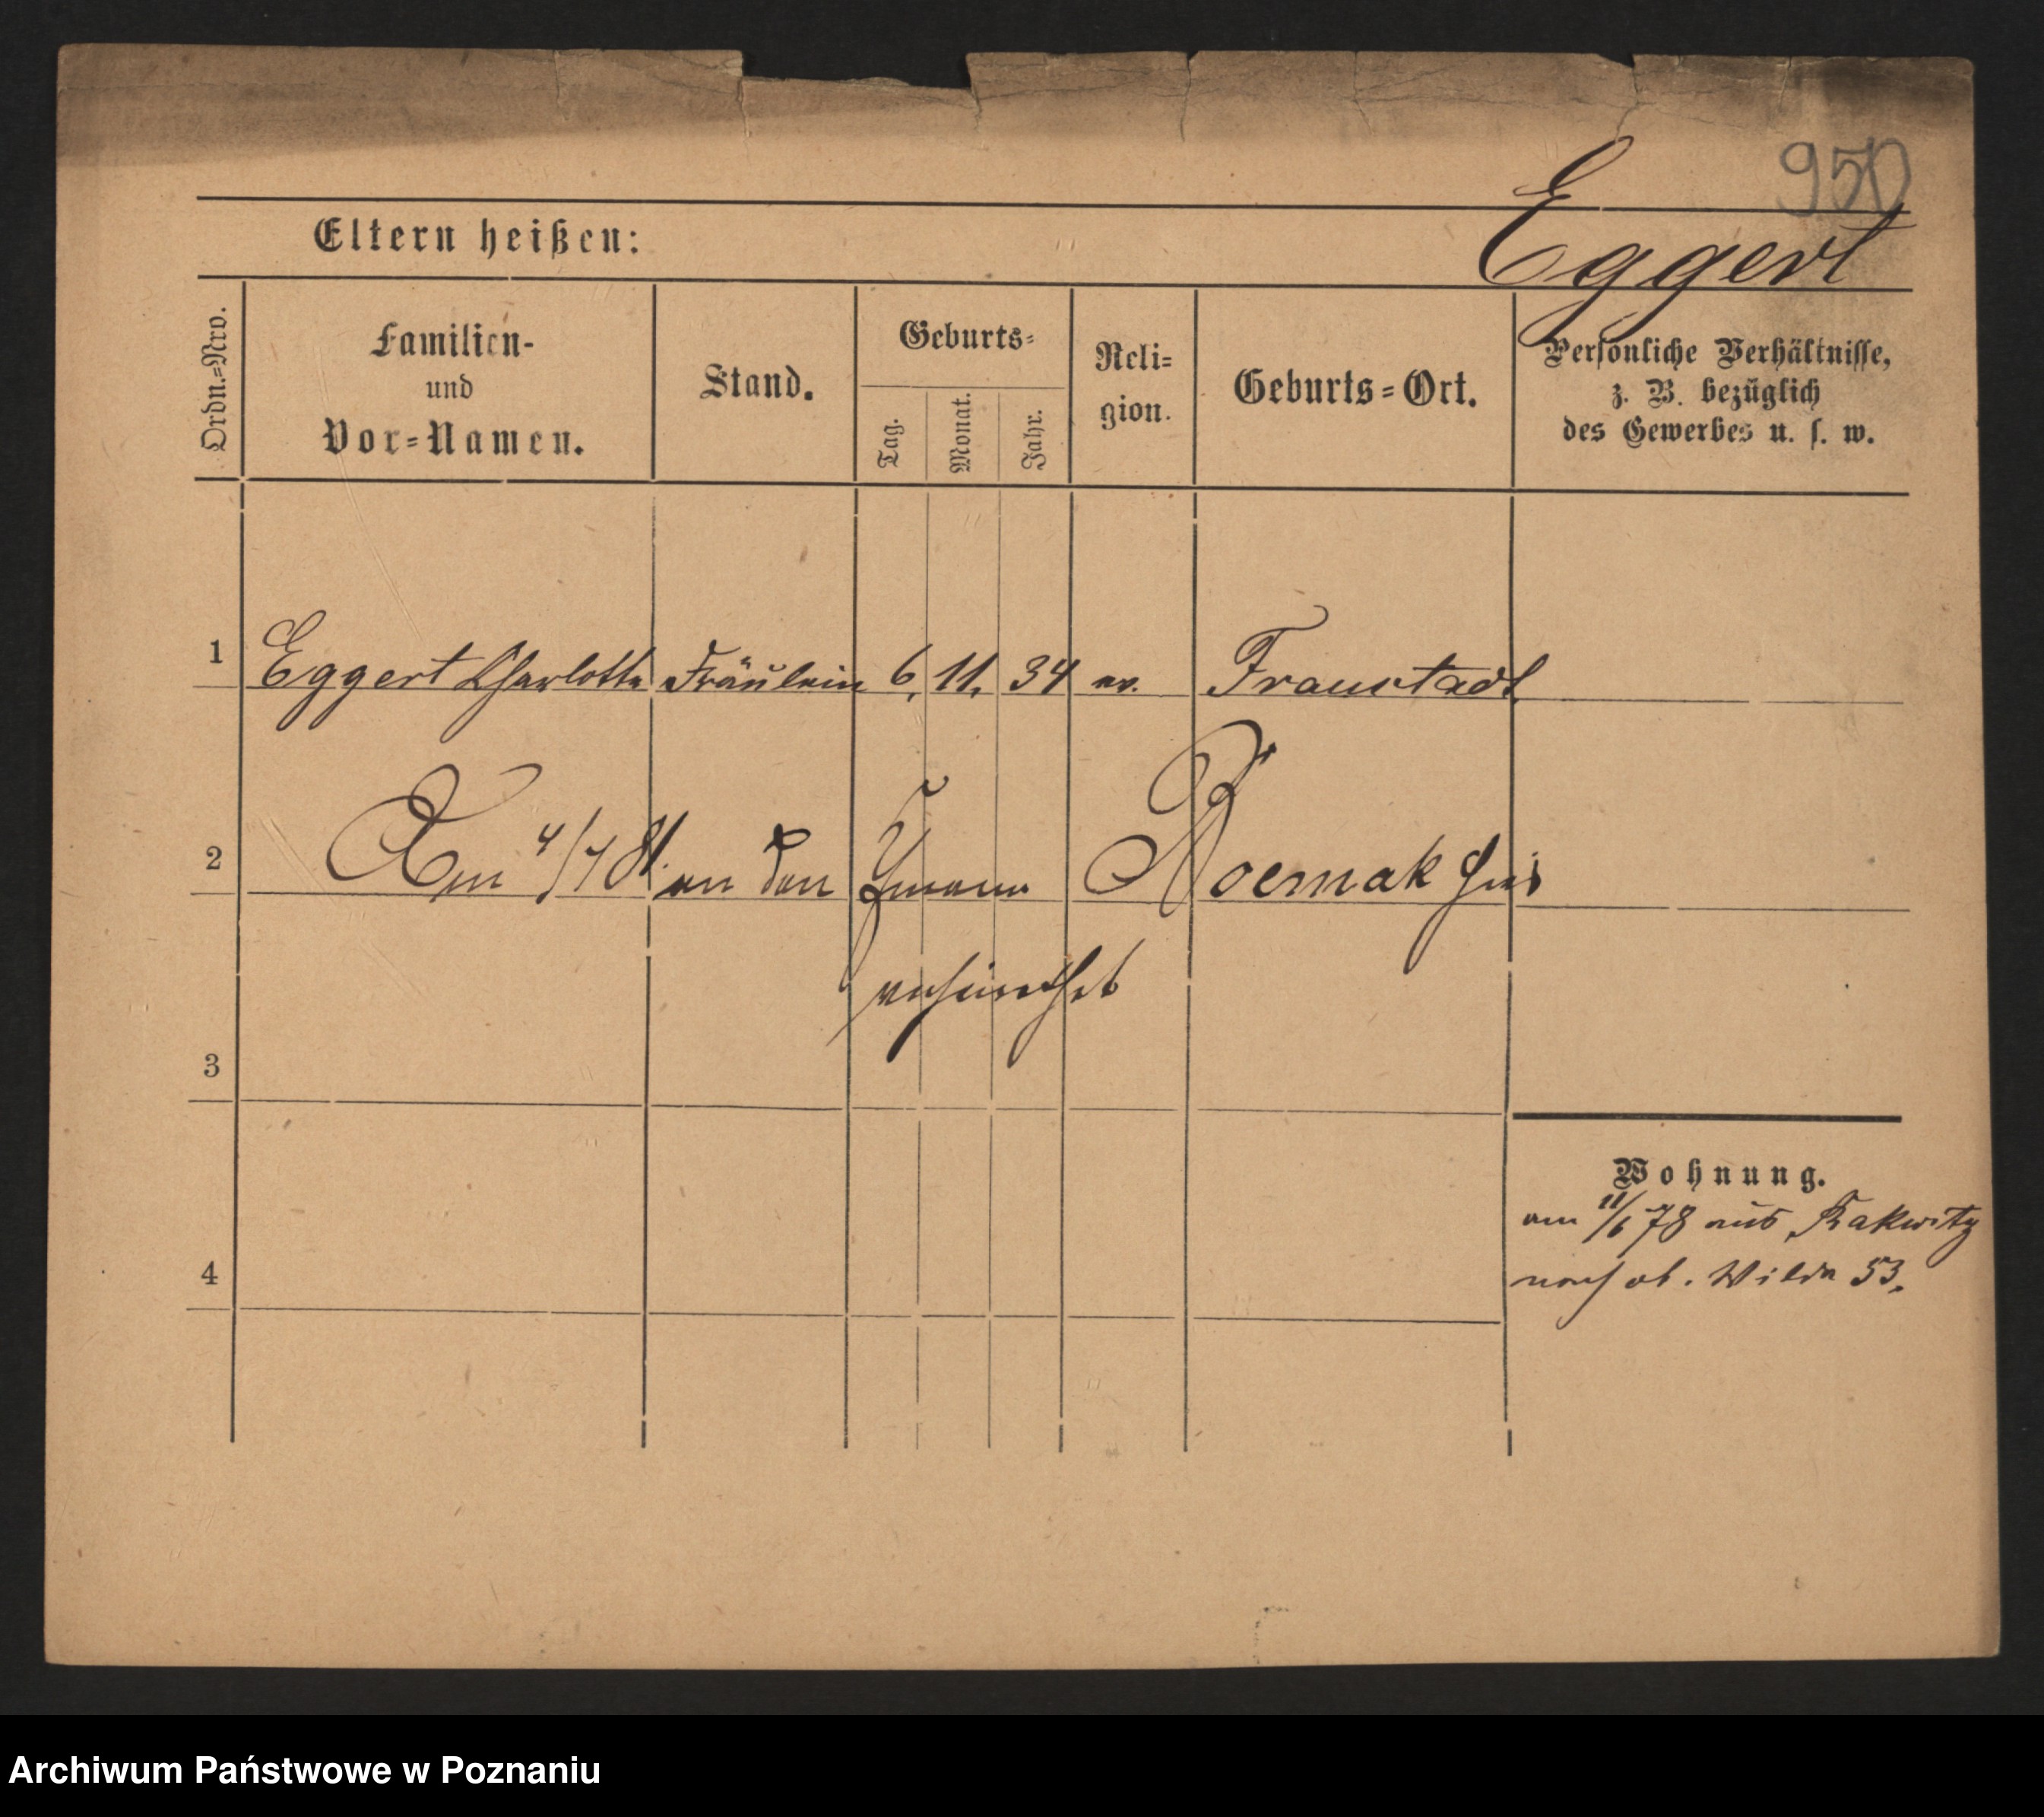 950
Eggert
Eltern heißen:
Ordn.=Nro.
Familien-
und
Vor=Namen.
Stand.
Geburts=
Tag.
Monat.
Jahr.
Reli=
gion.
Geburts=Ort.
Persönliche Verhältnisse,
z. B. bezüglich
des Gewerbes u. s. w.
1 Eggert Charlotte Fräulein 6. 11. 34 ev. Fraustadt
2 Am 4/7 81. an den Roemak hier
verheirathet
3
4
Wohnung.
am 11/6 78 aus Rakwitz
nach ob. Wilda 53.
Archiwum Państwowe w Poznaniu